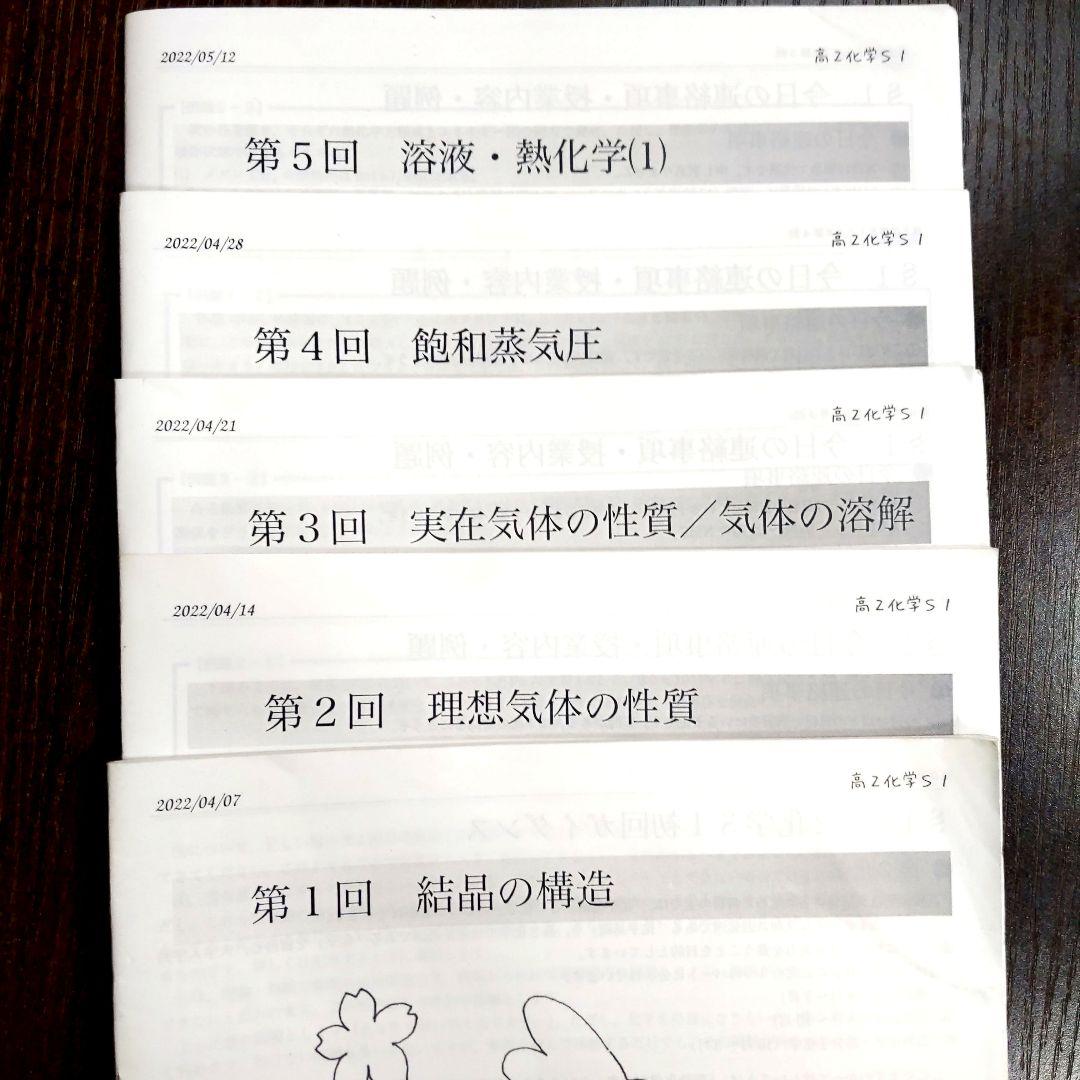 2022/05/12
高2化学S1
第5回 溶液・熱化学(1)
2022/04/28
高2化学S1
第4回 飽和蒸気圧
2022/04/21
高2化学S1
第3回 実在気体の性質／気体の溶解
2022/04/14
高2化学S1
第2回 理想気体の性質
2022/04/07
高2化学S1
第1回 結晶の構造